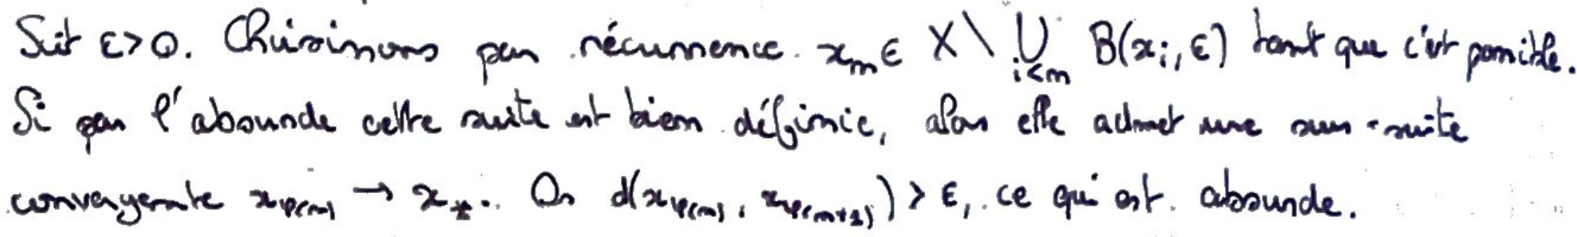 Soit ε>0. Choisissons par récurrence x_n ∈ X \ ⋃_{i<n} B(x_i, ε) tant que c'est possible.
Si par l'absurde cette suite est bien définie, alors elle admet une sous-suite
convergente x_{φ(n)} → x_*. Or d(x_{φ(n)}, x_{φ(n+1)}) > ε, ce qui est absurde.